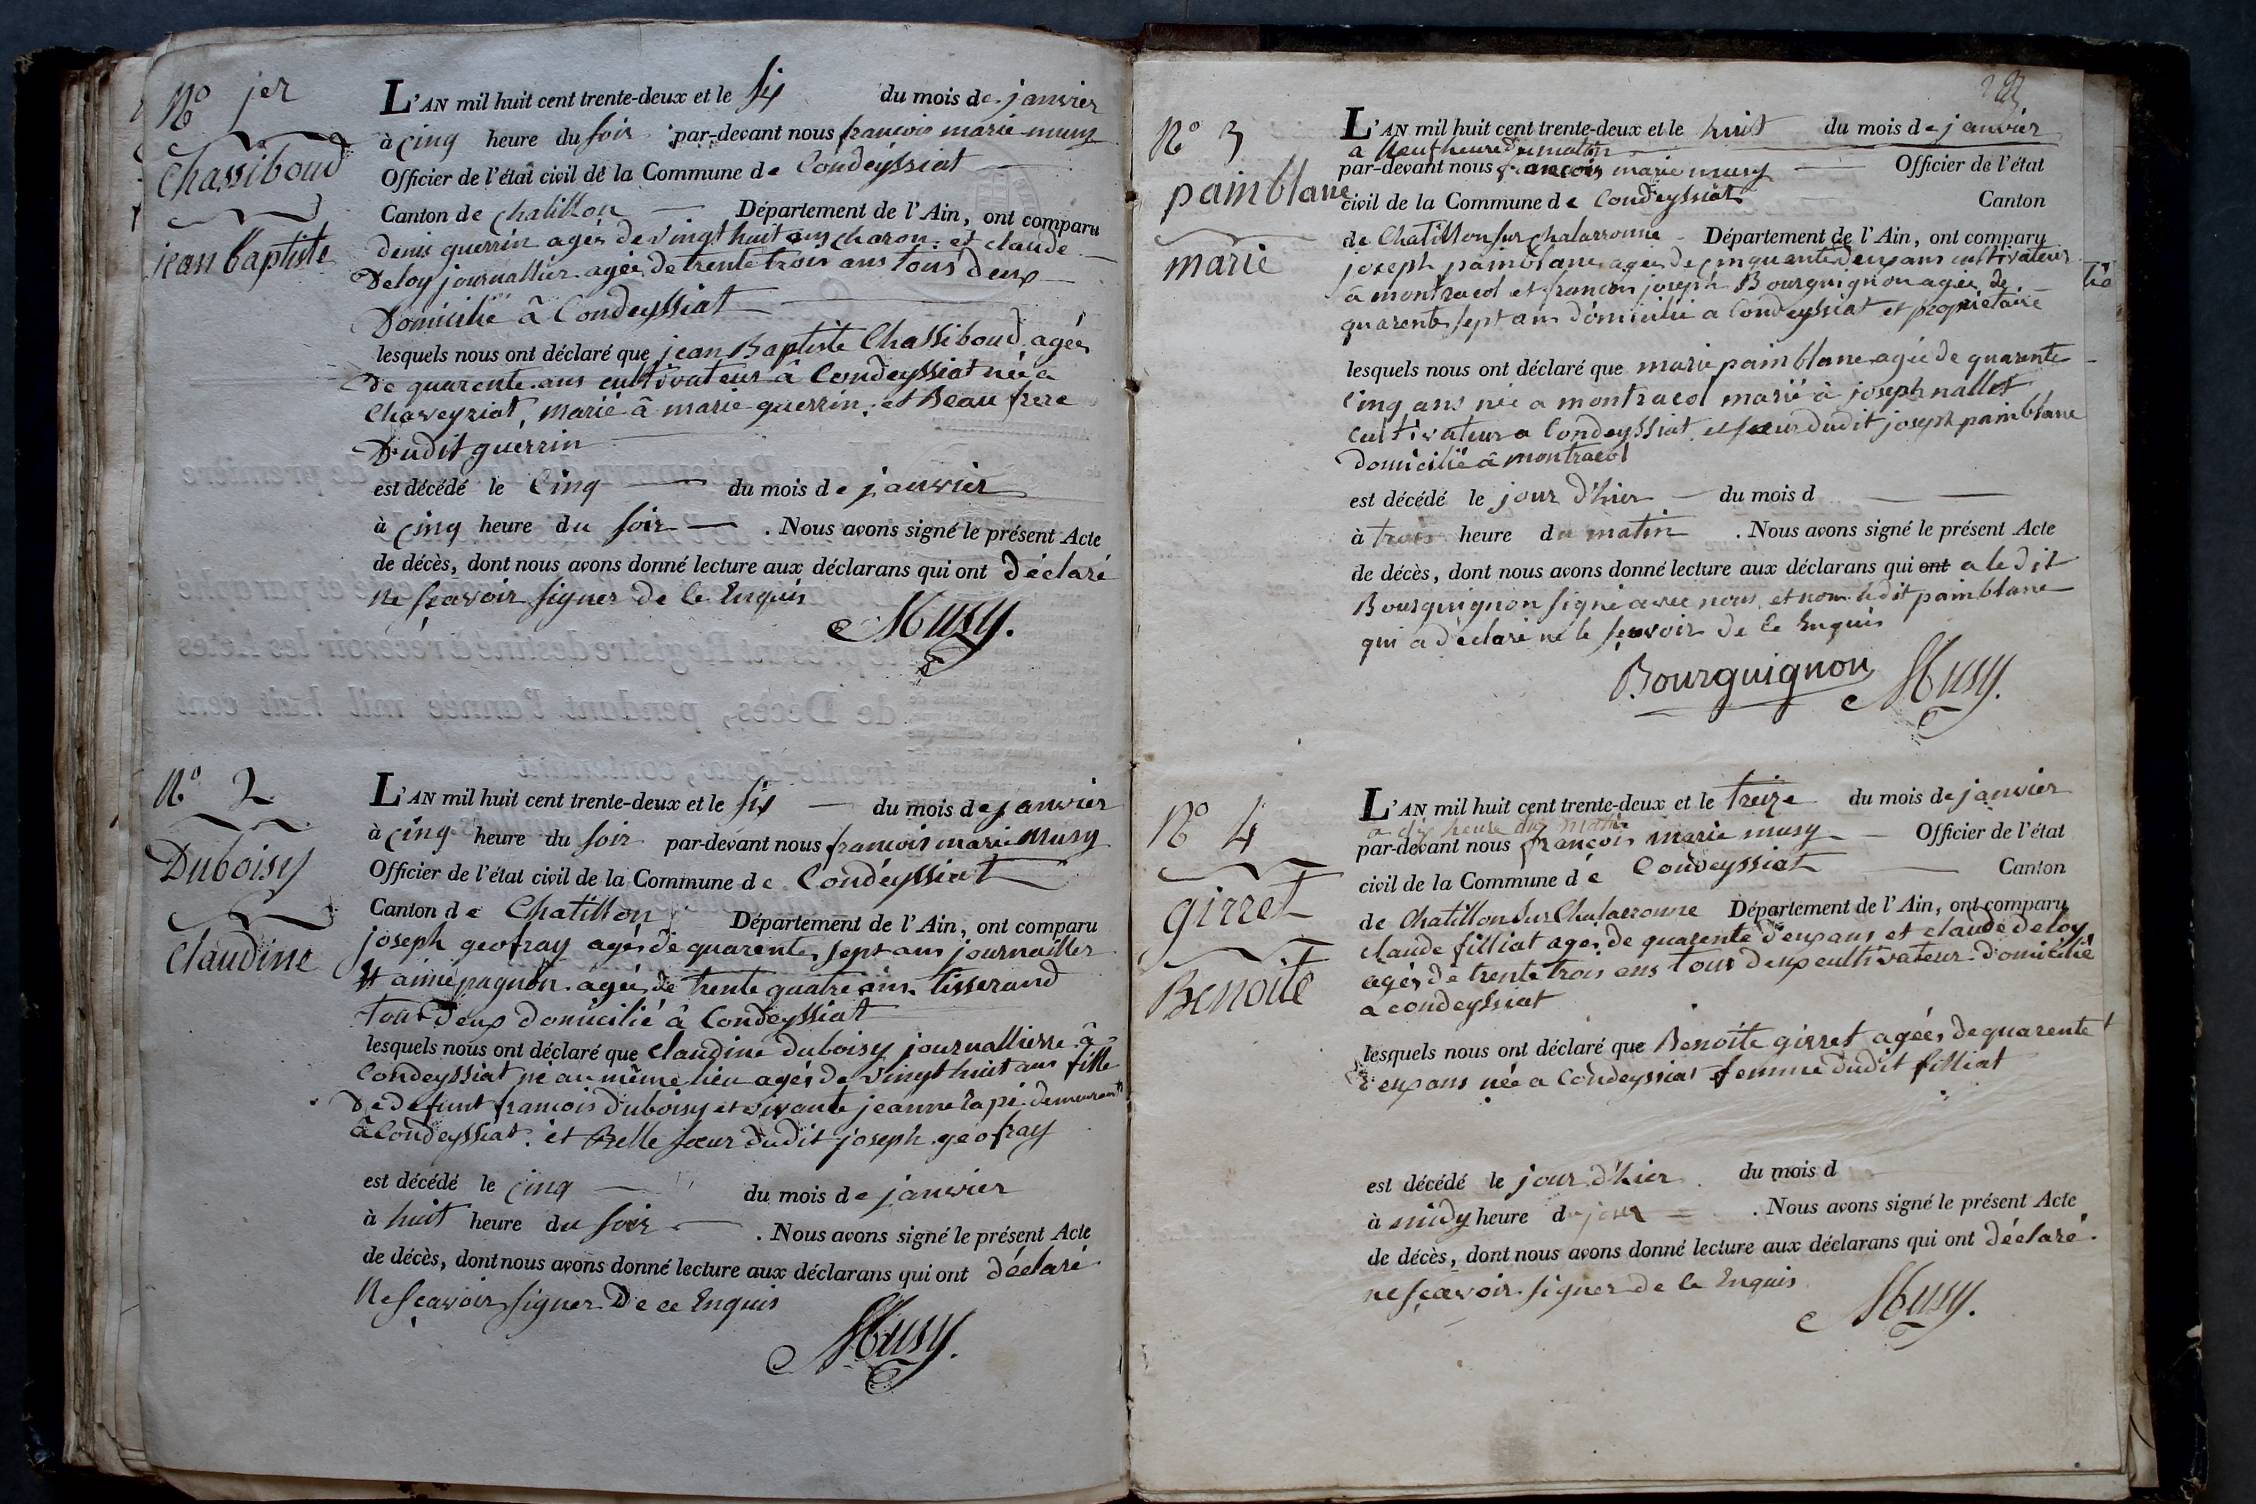 N.º 1er
Chassiboud
jean baptiste
L'AN mil huit cent trente-deux et le six du mois de janvier
à cinq heure du soir par-devant nous francois marie musy
Officier de l'état civil de la Commune de Condéyssiat
Canton de chatillon Département de l'Ain, ont comparu
denis guerrin agés de vingt huit ans charon et claude
Deloy journallier agée de trente trois ans tous deux
Domicilié â Condeyssiat
lesquels nous ont déclaré que jean Baptiste Chassiboud agées
de quarente ans cultivateur â Condeyssiat née a
Chaveyriat, marié â marie guerrin, et Beau frere
Dudit guerrin
est décédé le Cinq du mois de janvier
à Cinq heure du soir . Nous avons signé le présent Acte
de décès, dont nous avons donné lecture aux déclarans qui ont déclaré
ne sçavoir signer de ce Enquis
Musy.
N.º 2
Duboisy
Claudine
L'AN mil huit cent trente-deux et le six du mois de janvier
à cinq heure du soir par-devant nous francois marie Musy
Officier de l'état civil de la Commune de Condéyssiat
Canton de Chatillon Département de l'Ain, ont comparu
joseph geofray agés de quarente sept ans journaillier
Et aimé pugnon agée de trente quatre ans tisserand
tout deux domicilié â Condeyssiat
lesquels nous ont déclaré que claudine duboisy journallierre â
Condeyssiat né au même lieu agés de vingt huit ans fille
De defunt francois Duboisy et vivante jeanne rapé demeurant
â Condeyssiat et Belle sœur dudit joseph geofray
est décédé le cinq du mois de janvier
à huit heure du soir . Nous avons signé le présent Acte
de décès, dont nous avons donné lecture aux déclarans qui ont déclaré
Ne sçavoir signer De ce Enquis
Musy.
N.º 3
painblanc
marie
L'AN mil huit cent trente-deux et le huit du mois de janvier
a Neuf heure du matin
par-devant nous francois marie musy Officier de l'état
civil de la Commune de Condeyssiat Canton
de Chatillon sur chalarronne Département de l'Ain, ont comparu
joseph painblanc agés de cinquante deux ans cultivateur
â montracol et francois joseph Bourguignon agée de
quarente sept ans domicilié a Condeyssiat et propriétaire
lesquels nous ont déclaré que marie painblanc agée de quarente
Cinq ans née a montracol marié â joseph nallet
cultivateur a Condeyssiat et sœur dudit joseph painblanc
domicilié â montracol
est décédé le jour d'hier du mois d
à trois heure du matin . Nous avons signé le présent Acte
de décès, dont nous avons donné lecture aux déclarans qui ont a le dit
Bourguignon signé avec nous et non ledit painblanc
qui a déclaré ne le sçavoir de ce Enquis
Bourguignon Musy.
N.º 4
girret
Benoite
L'AN mil huit cent trente-deux et le treize du mois de janvier
a dix heure du matin
par-devant nous françois marie musy Officier de l'état
civil de la Commune de Condeyssiat Canton
de Chatillon sur Chalarronne Département de l'Ain, ont comparu
claude filliat agés de quarente deux ans et claude deloy
agés de trente trois ans tous deux cultivateur domicilié
a condeyssiat
lesquels nous ont déclaré que Benoite girret agées de quarente
deux ans née a Condeyssiat femme dudit filliat
est décédé le jour d'hier du mois d
à midy heure du jour . Nous avons signé le présent Acte
de décès, dont nous avons donné lecture aux déclarans qui ont déclaré
ne sçavoir signer de ce Enquis
Musy.